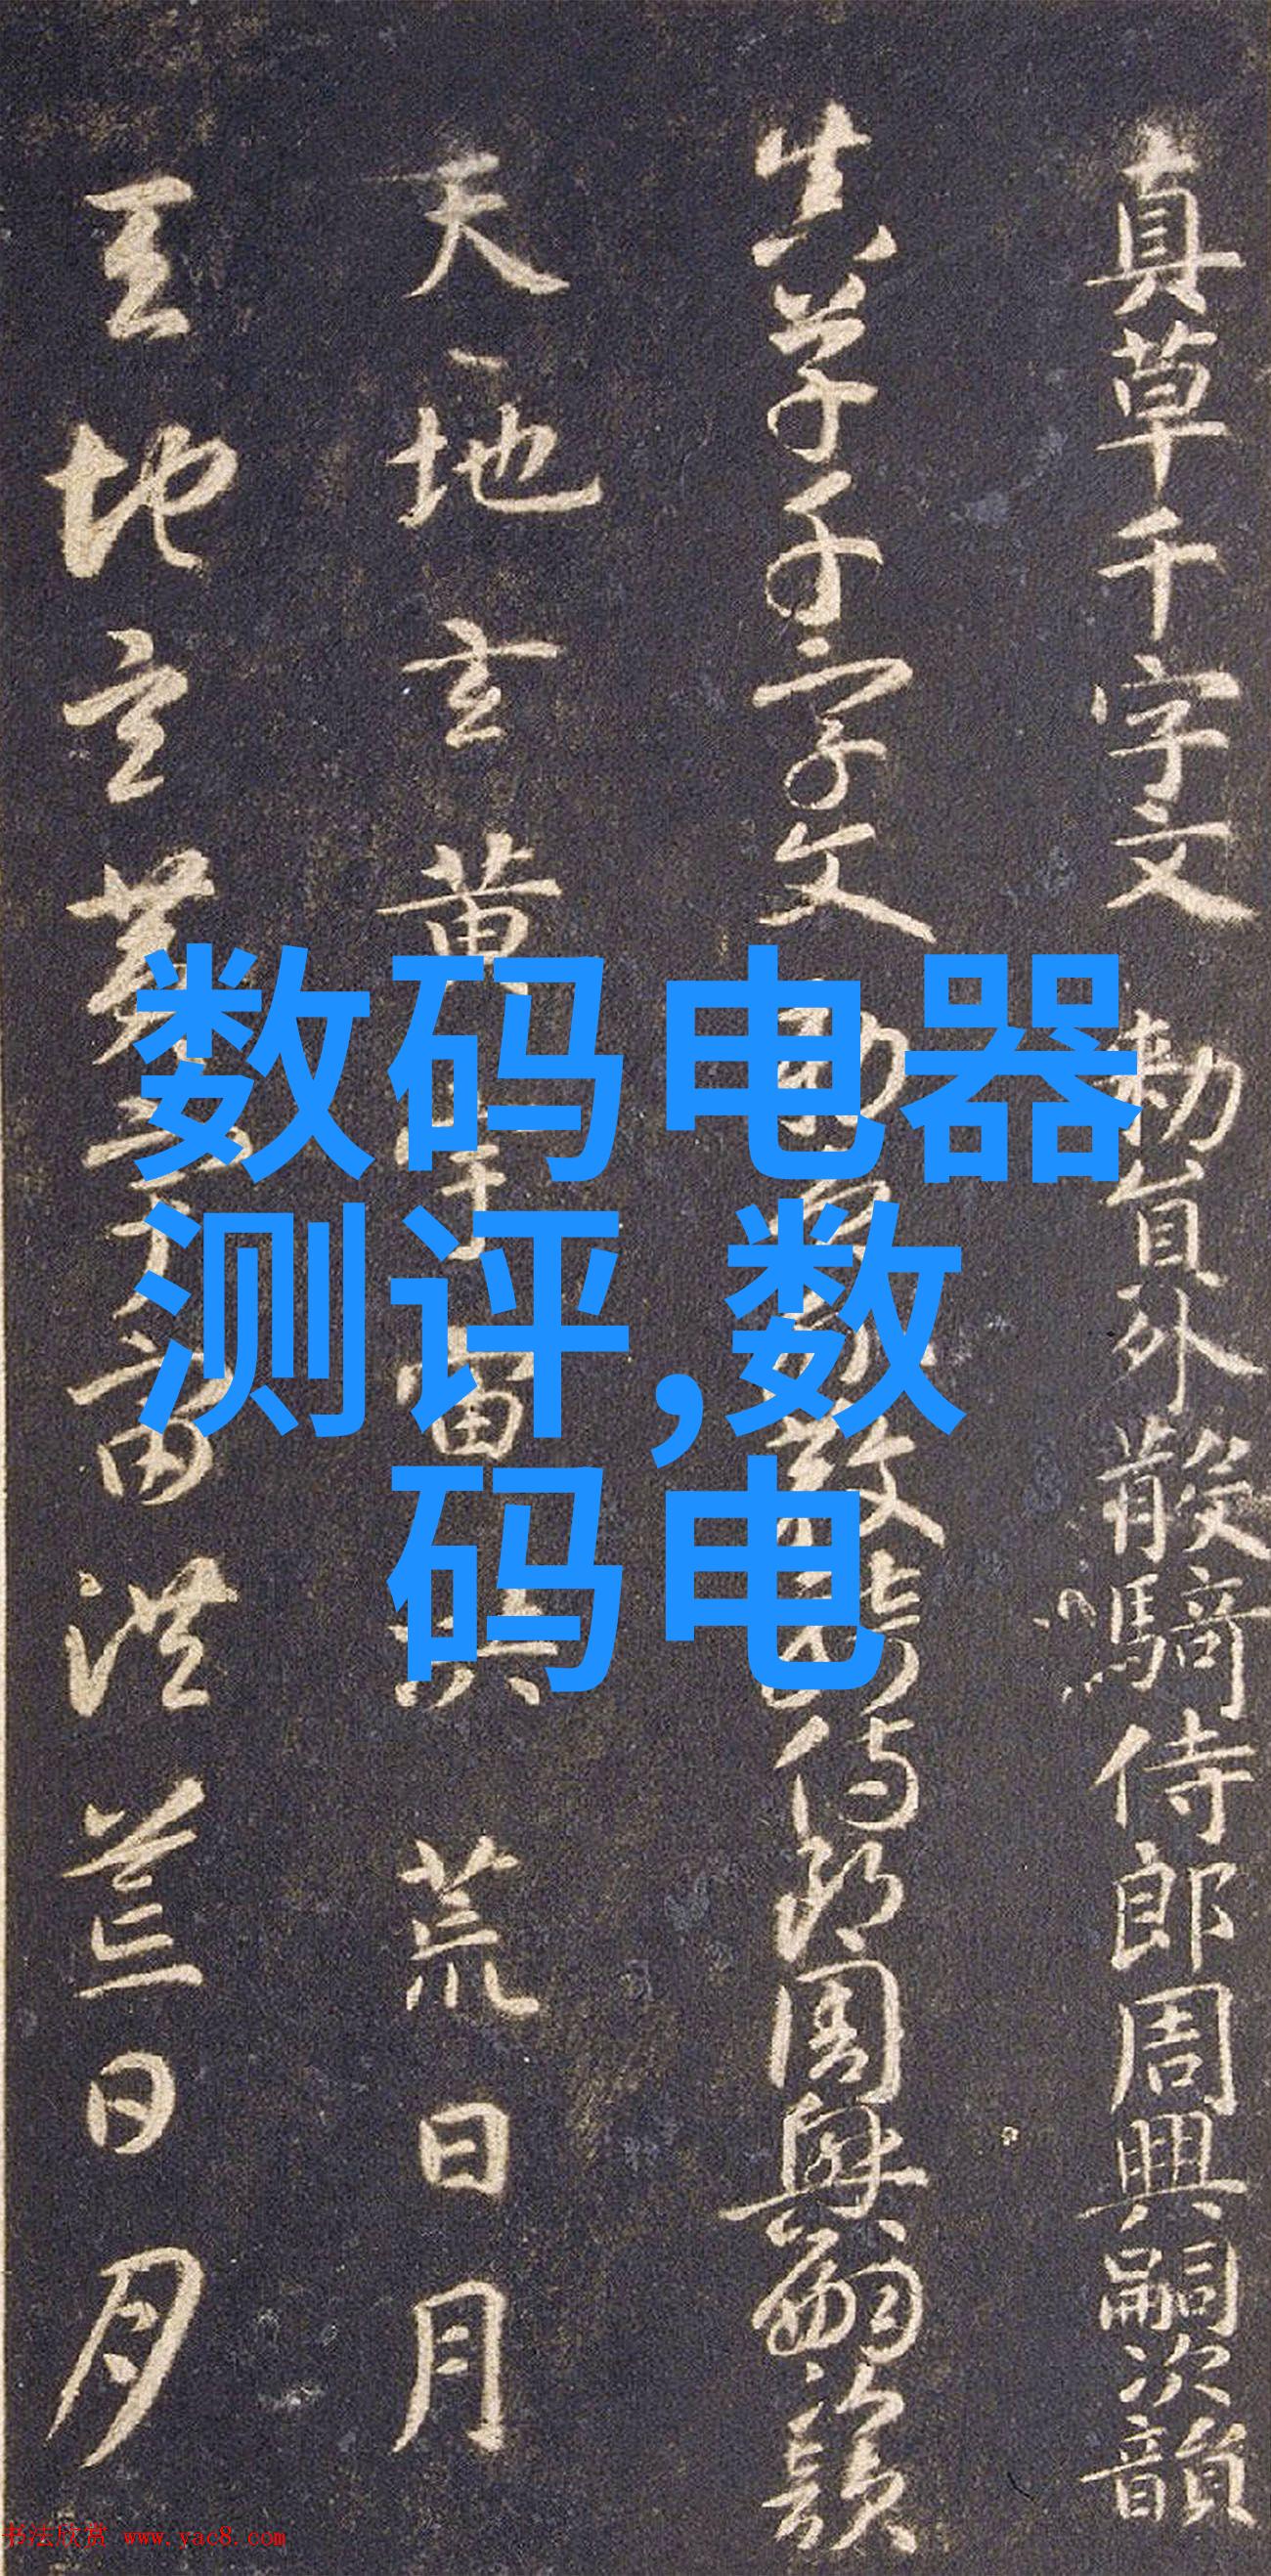 真草千字文 勅員外散騎侍郎周興嗣次韻
真草千字文 勅員外散騎侍郎周興嗣次韻
天地玄黄宇宙洪荒日月
天地玄黄宇宙洪荒日月
数码电器
测评,数
码电
书法欣赏 www.yac8.com